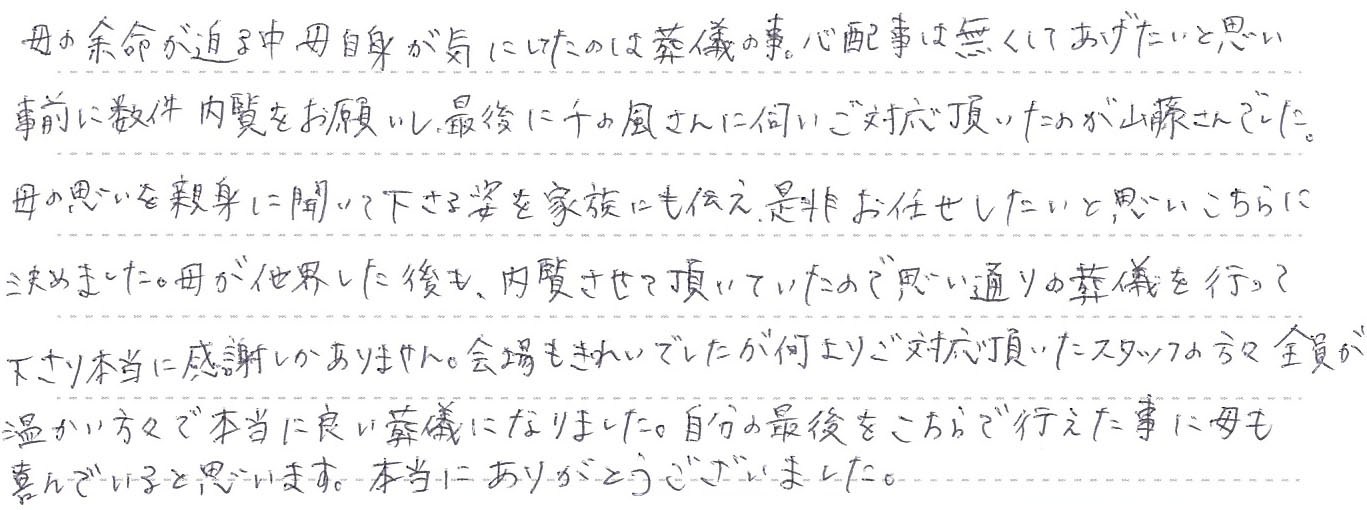 母の余命が迫る中母自身が気にしてたのは葬儀の事。心配事は無くしてあげたいと思い
事前に数件内覧をお願いし、最後に千の風さんに伺いご対応頂いたのが山藤さんでした。
母の思いを親身に聞いて下さる姿を家族にも伝え、是非お任せしたいと思いこちらに
決めました。母が他界した後も、内覧させて頂いていたので思い通りの葬儀を行って
下さり本当に感謝しかありません。会場もきれいでしたが何よりご対応頂いたスタッフの方々全員が
温かい方々で本当に良い葬儀になりました。自分の最後をこちらで行えた事に母も
喜んでいると思います。本当にありがとうございました。